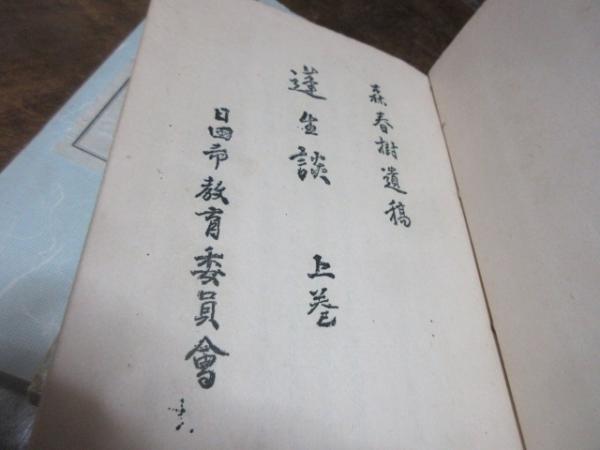 森春樹遺稿
蓬生談 上巻
日田市教育委員會